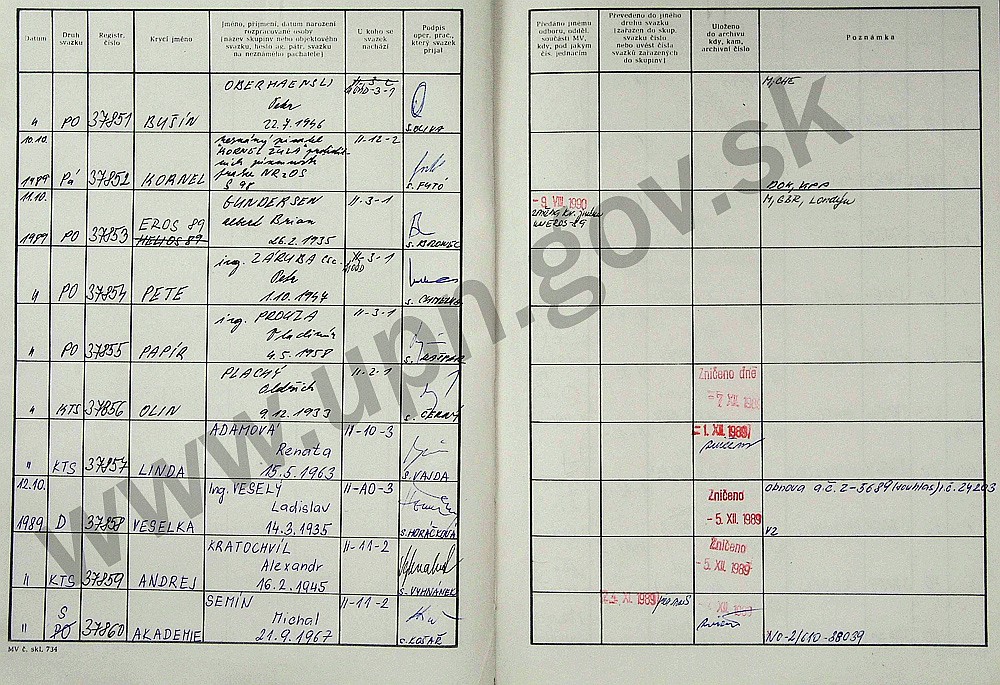 Datum
Druh svazku
Registr. číslo
Krycí jméno
Jméno, příjmení, datum narození
rozpracované osoby
[název skupiny nebo objektového
svazku, heslo ag. pátr. svazku
na neznámého pachatele]
U koho se
svazek
nachází
Podpis
oper. prac.,
který svazek
přijal
Předáno jinému
odboru, odděl.
součásti MV,
kdy, pod jakým
čís. jednacím
Převedeno do jiného
druhu svazku
[zařazen do skup.
svazku číslo
nebo uvést čísla
svazků zařazených
do skupiny]
Uloženo
do archivu
kdy, kam,
archivní číslo
Poznámka
OBERHAENSLI
Petr
22.7.1946
PO 37851 BUŠÍN
S. OLIVA
10.10.
1989 Pá 37852 KORNEL
KORNEL ŽULA
§ 98
II-12-2
S. FUTÓ
11.10.
1989 PO 37853
EROS 89
HELIOS 89
GUNDERSEN
Albert Brian
26.2.1935
II-3-1
- 9. VIII. 1990
DOK, KPP
M, GBR, Londýn
II PO 37854 PETE
ing. ZÁRUBA CSc.
Petr
1.10.1944
II PO 37855 PAPÍR
ing. PROUZA
Vladimír
4.5.1958
II-3-1
II KTS 37856 OLIN
PLACHÝ
Oldřich
9.12.1933
II-2-1
S. ČERNÝ
Zničeno dne
- 7. XII. 1989
II KTS 37857 LINDA
ADAMOVÁ
Renata
15.5.1963
II-10-3
S. VAJDA
- 1. XII. 1989
12.10.
1989 D 37858 VESELKA
Ing. VESELÝ
Ladislav
14.3.1935
II-AO-3
S. HORÁČKOVÁ
Zničeno
- 5. XII. 1989
obnova a.č. 2-5689 (souhlas) č. 24203
V2
II KTS 37859 ANDREJ
KRATOCHVÍL
Alexandr
16.2.1945
II-11-2
S. VYHNÁNEK
Zničeno
- 5. XII. 1989
S
II PO 37860 AKADEMIE
SEMÍN
Michal
21.9.1967
II-11-2
S. KOŠAŘ
24. XI. 1989
No-2/610-88039
MV č. skl. 734
www.upn.gov.sk